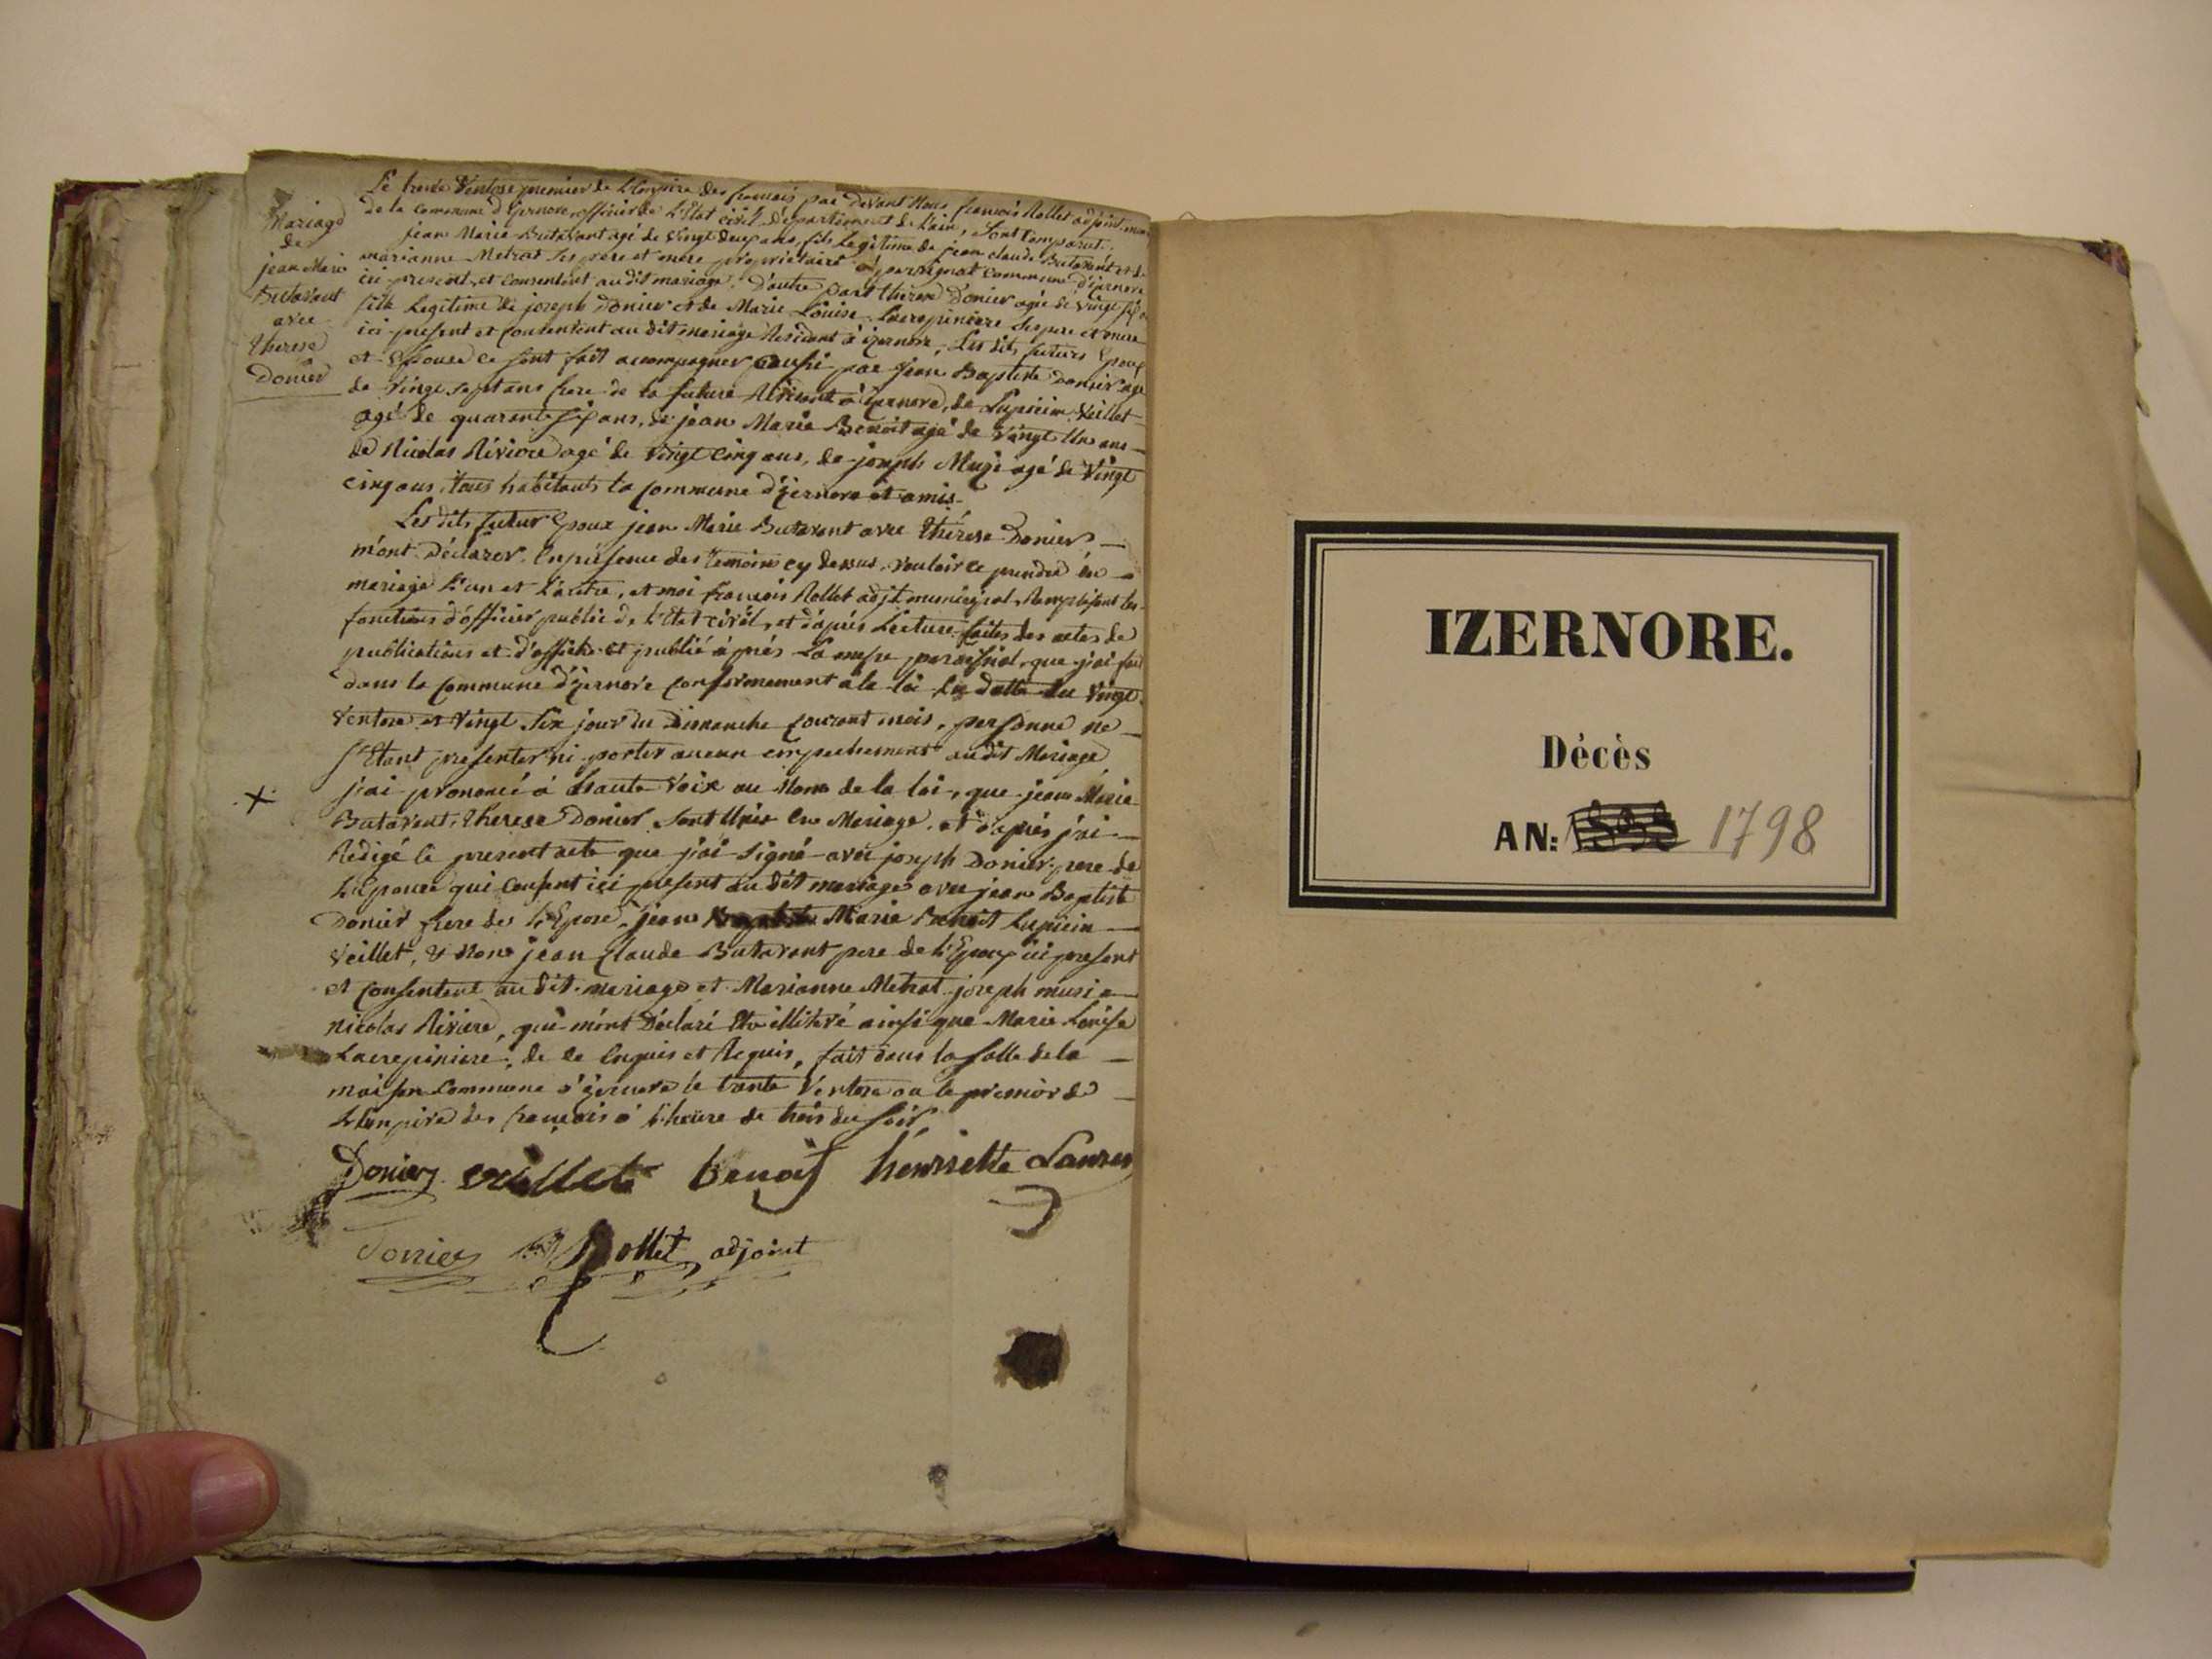 Mariage
de
jean Marie
Butavant
avec
therese
Donier
Le trente Ventose premier de L'Empire des francais par devant Nous francois Rollet adjoint
de la commune d'izernore officier de L'Etat civil Departement de L'ain, Sont Comparut.
Jean Marie Butavant agé de Vingt deux ans, fils Legitime de jean claude Butavant et de
marianne Metrat ses pere et mere proprietaire à perrignat commune d'izernore
ici present, et consentent au dit mariage, D'autre part therese Donier agée de Vingt six
fille Legitime de joseph Donier et de Marie Louise Lacrepiniere ses pere et mere
ici present et consentent au dit mariage Residant à izernore, Les dits futurs Epoux
et Epouse ce sont fait accompagner aussi par Jean Baptiste Donier agé
de Vingt sept ans frere de la future Residant à izernore, de Lupicin Veillet
agé de quarente six ans, de jean Marie Benoit agé de Vingt Un ans
de Nicolas Riviere agé de Vingt cinq ans, de joseph Musi agé de Vingt
cinq ans, tous habitants la commune d'izernore et amis.
Les dits futur Epoux jean Marie Butavant avec thérese Donier
m'ont Déclarer En présence des temoins cy dessus, vouloir ce prendre en
mariage L'un et L'autre, et moi francois Rollet adjt municipal, Remplissant les
fonctions d'officier public de L'Etat civil, et d'aprés Lecture faites des actes de
publications et d'affiche et publié àprés La messe paroissial, que j'ai fait
dans la Commune d'izernore conformement à la loi En datte du Vingt
Ventose et Vingt Six jour du Dimanche courant mois, personne ne
s'Etant presenter ni porter aucun empechement au dit Mariage
j'ai prononcé à Haute Voix au Nom de la loi, que jean Marie
Butavent, therese Donier Sont Unis En Mariage, et d'aprés j'ai
Redigé le present acte que j'ai Signé avec joseph Donier pere de
L'Epouse qui consent ici present au dit mariage avec jean Baptiste
Donier frere de L'Epose, jean Marie Benoit Lupicin
Veillet, & Non jean Claude Butavant pere de L'Epoux ici present
et consentent au dit mariage et Marianne Metrat joseph musi
nicolas Riviere, qui m'ont Déclaré Etre illiteré ainsi que Marie Louise
Lacrepiniere, de ce Enquis et Requis, fait dans la Salle de la
maison Commune d'izernore le trente Ventose an le premier de
L'Empire des francais à l'heure de trois du Soir
Donier veillet benoit henriette Lanren
Donier Rollet adjoint
IZERNORE.
Décès
AN: 1798